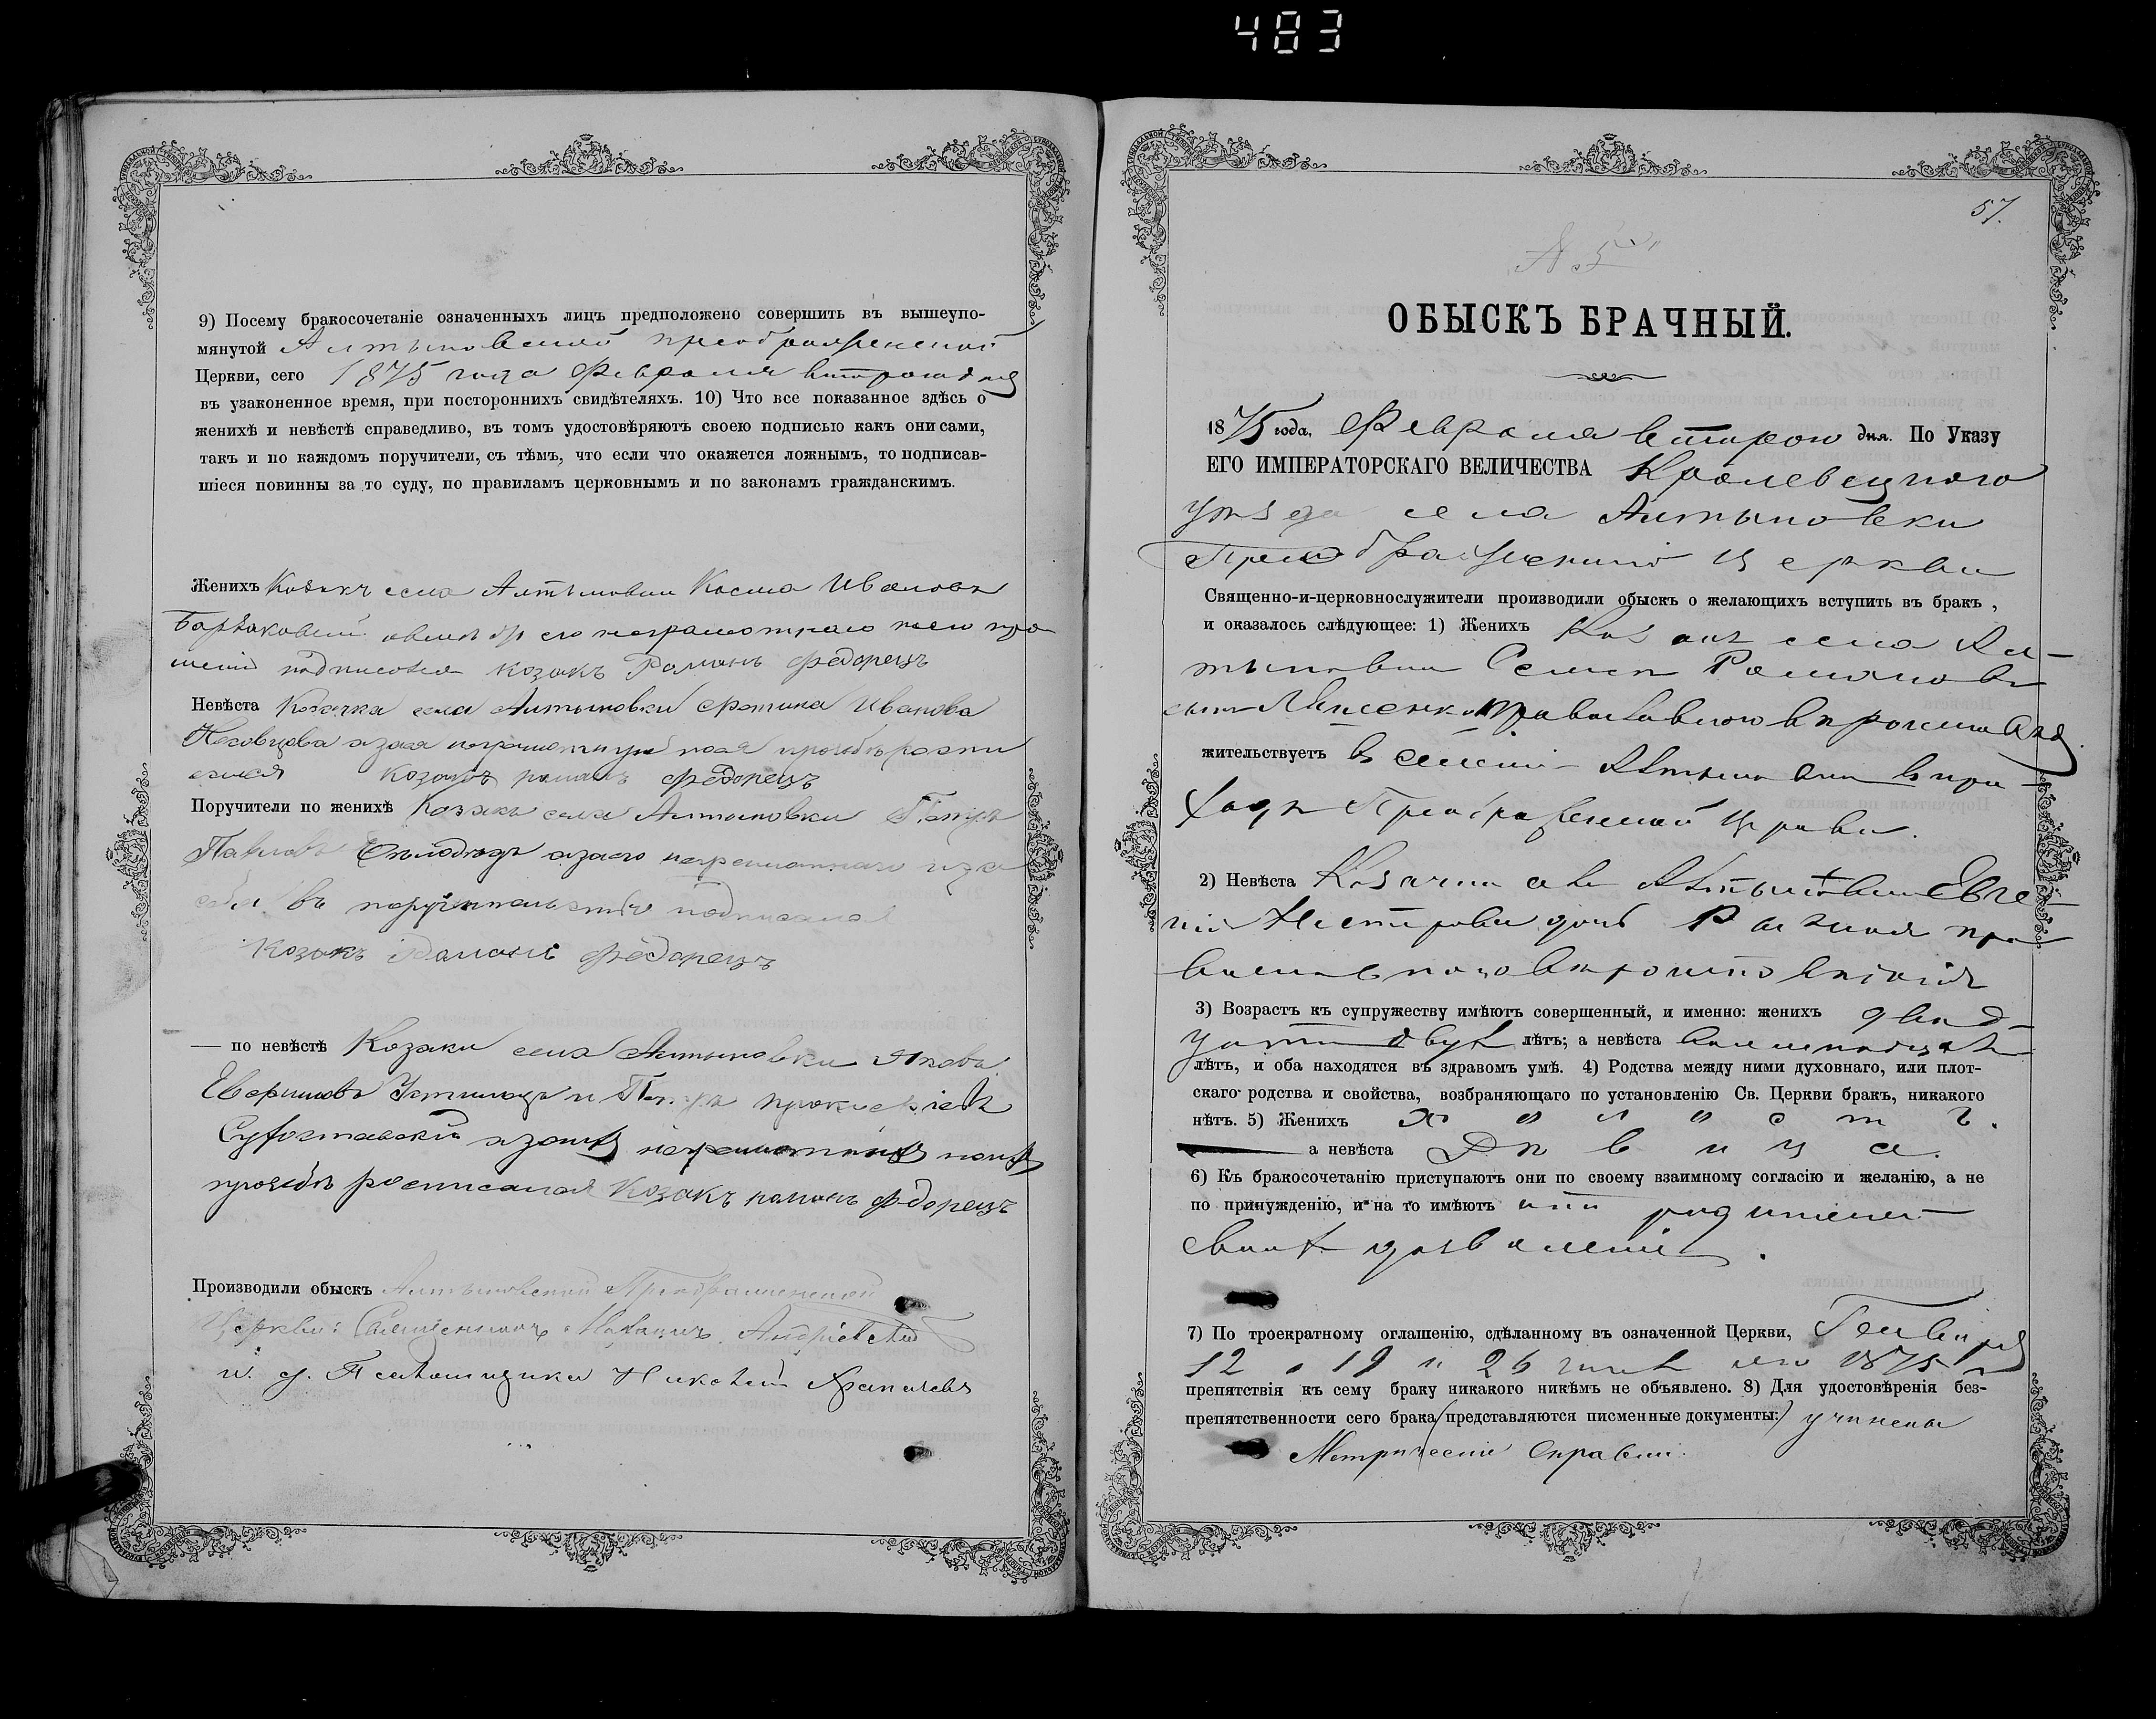 483
9) Посему бракосочетаніе означенныхъ лицъ предположено совершить въ вышеупо-
мянутой Алтыновской Преображенской
Церкви, сего 1875 года Февраля втораго дня
въ узаконенное время, при постороннихъ свидѣтеляхъ. 10) Что все показанное здѣсь о
женихѣ и невѣстѣ справедливо, въ томъ удостовѣряютъ своею подписью какъ они сами,
такъ и по каждомъ поручители, съ тѣмъ, что если что окажется ложнымъ, то подписав-
шіеся повинны за то суду, по правиламъ церковнымъ и по законамъ гражданскимъ.
Женихъ Козакъ села Алтыновки Косма Ивановъ
неграмотнаго
подписался козакъ Романъ Федорецъ
Невѣста Козачка села Алтыновки Иванова
козакъ романъ федорецъ
Поручители по женихѣ Козакъ села Алтыновки Петръ
Павловъ а за его неграмотнаго и за
себя въ поручительство подписался
козакъ Романъ федорецъ
— по невѣстѣ Козаки села Алтыновки Яковъ
и Петръ
а за ихъ неграмотныхъ по ихъ
прозбѣ росписался козакъ романъ федорецъ
Производили обыскъ Алтыновской Преображенской
Церкви: Священникъ Андріевскій
и. д. Псаломщика Николай
57.
№ 5
ОБЫСКЪ БРАЧНЫЙ.
1875 года, Февраля второго дня. По Указу
ЕГО ИМПЕРАТОРСКАГО ВЕЛИЧЕСТВА Кролевецкого
уѣзда села Алтыновки
Преображенской Церкви
Священно-и-церковнослужители производили обыскъ о желающихъ вступить въ бракъ,
и оказалось слѣдующее: 1) Женихъ Козакъ села Ал-
тыновки Семенъ Романовъ
сынъ православного вѣроисповѣд.
жительствуетъ въ селеніи Алтыновки въ при-
ходѣ Преображенской Церкви.
2) Невѣста Козачка села Алтыновки Евге-
нія Нестерова дочь пра
вославного вѣроисповѣданія
3) Возрастъ къ супружеству имѣютъ совершенный, и именно: женихъ двад-
цати двухъ лѣтъ; а невѣста восемнадцати
лѣтъ, и оба находятся въ здравомъ умѣ. 4) Родства между ними духовнаго, или плот-
скаго родства и свойства, возбраняющаго по установленію Св. Церкви бракъ, никакого
нѣтъ. 5) Женихъ холостъ.
а невѣста Дѣвица.
6) Къ бракосочетанію приступаютъ они по своему взаимному согласію и желанію, а не
по принужденію, и на то имѣютъ отъ родителей
своихъ дозволеніе.
7) По троекратному оглашенію, сдѣланному въ означенной Церкви, Генваря
12, 19 и 26 чиселъ сего 1875 г
препятствія къ сему браку никакого никѣмъ не объявлено. 8) Для удостовѣренія без-
препятственности сего брака (представляются писменные документы:) учинены
Метрическіе справки.